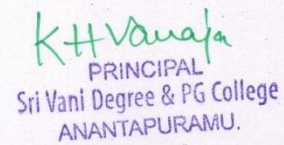 KHVanaja
PRINCIPAL
Sri Vani Degree & PG College
ANANTAPURAMU.